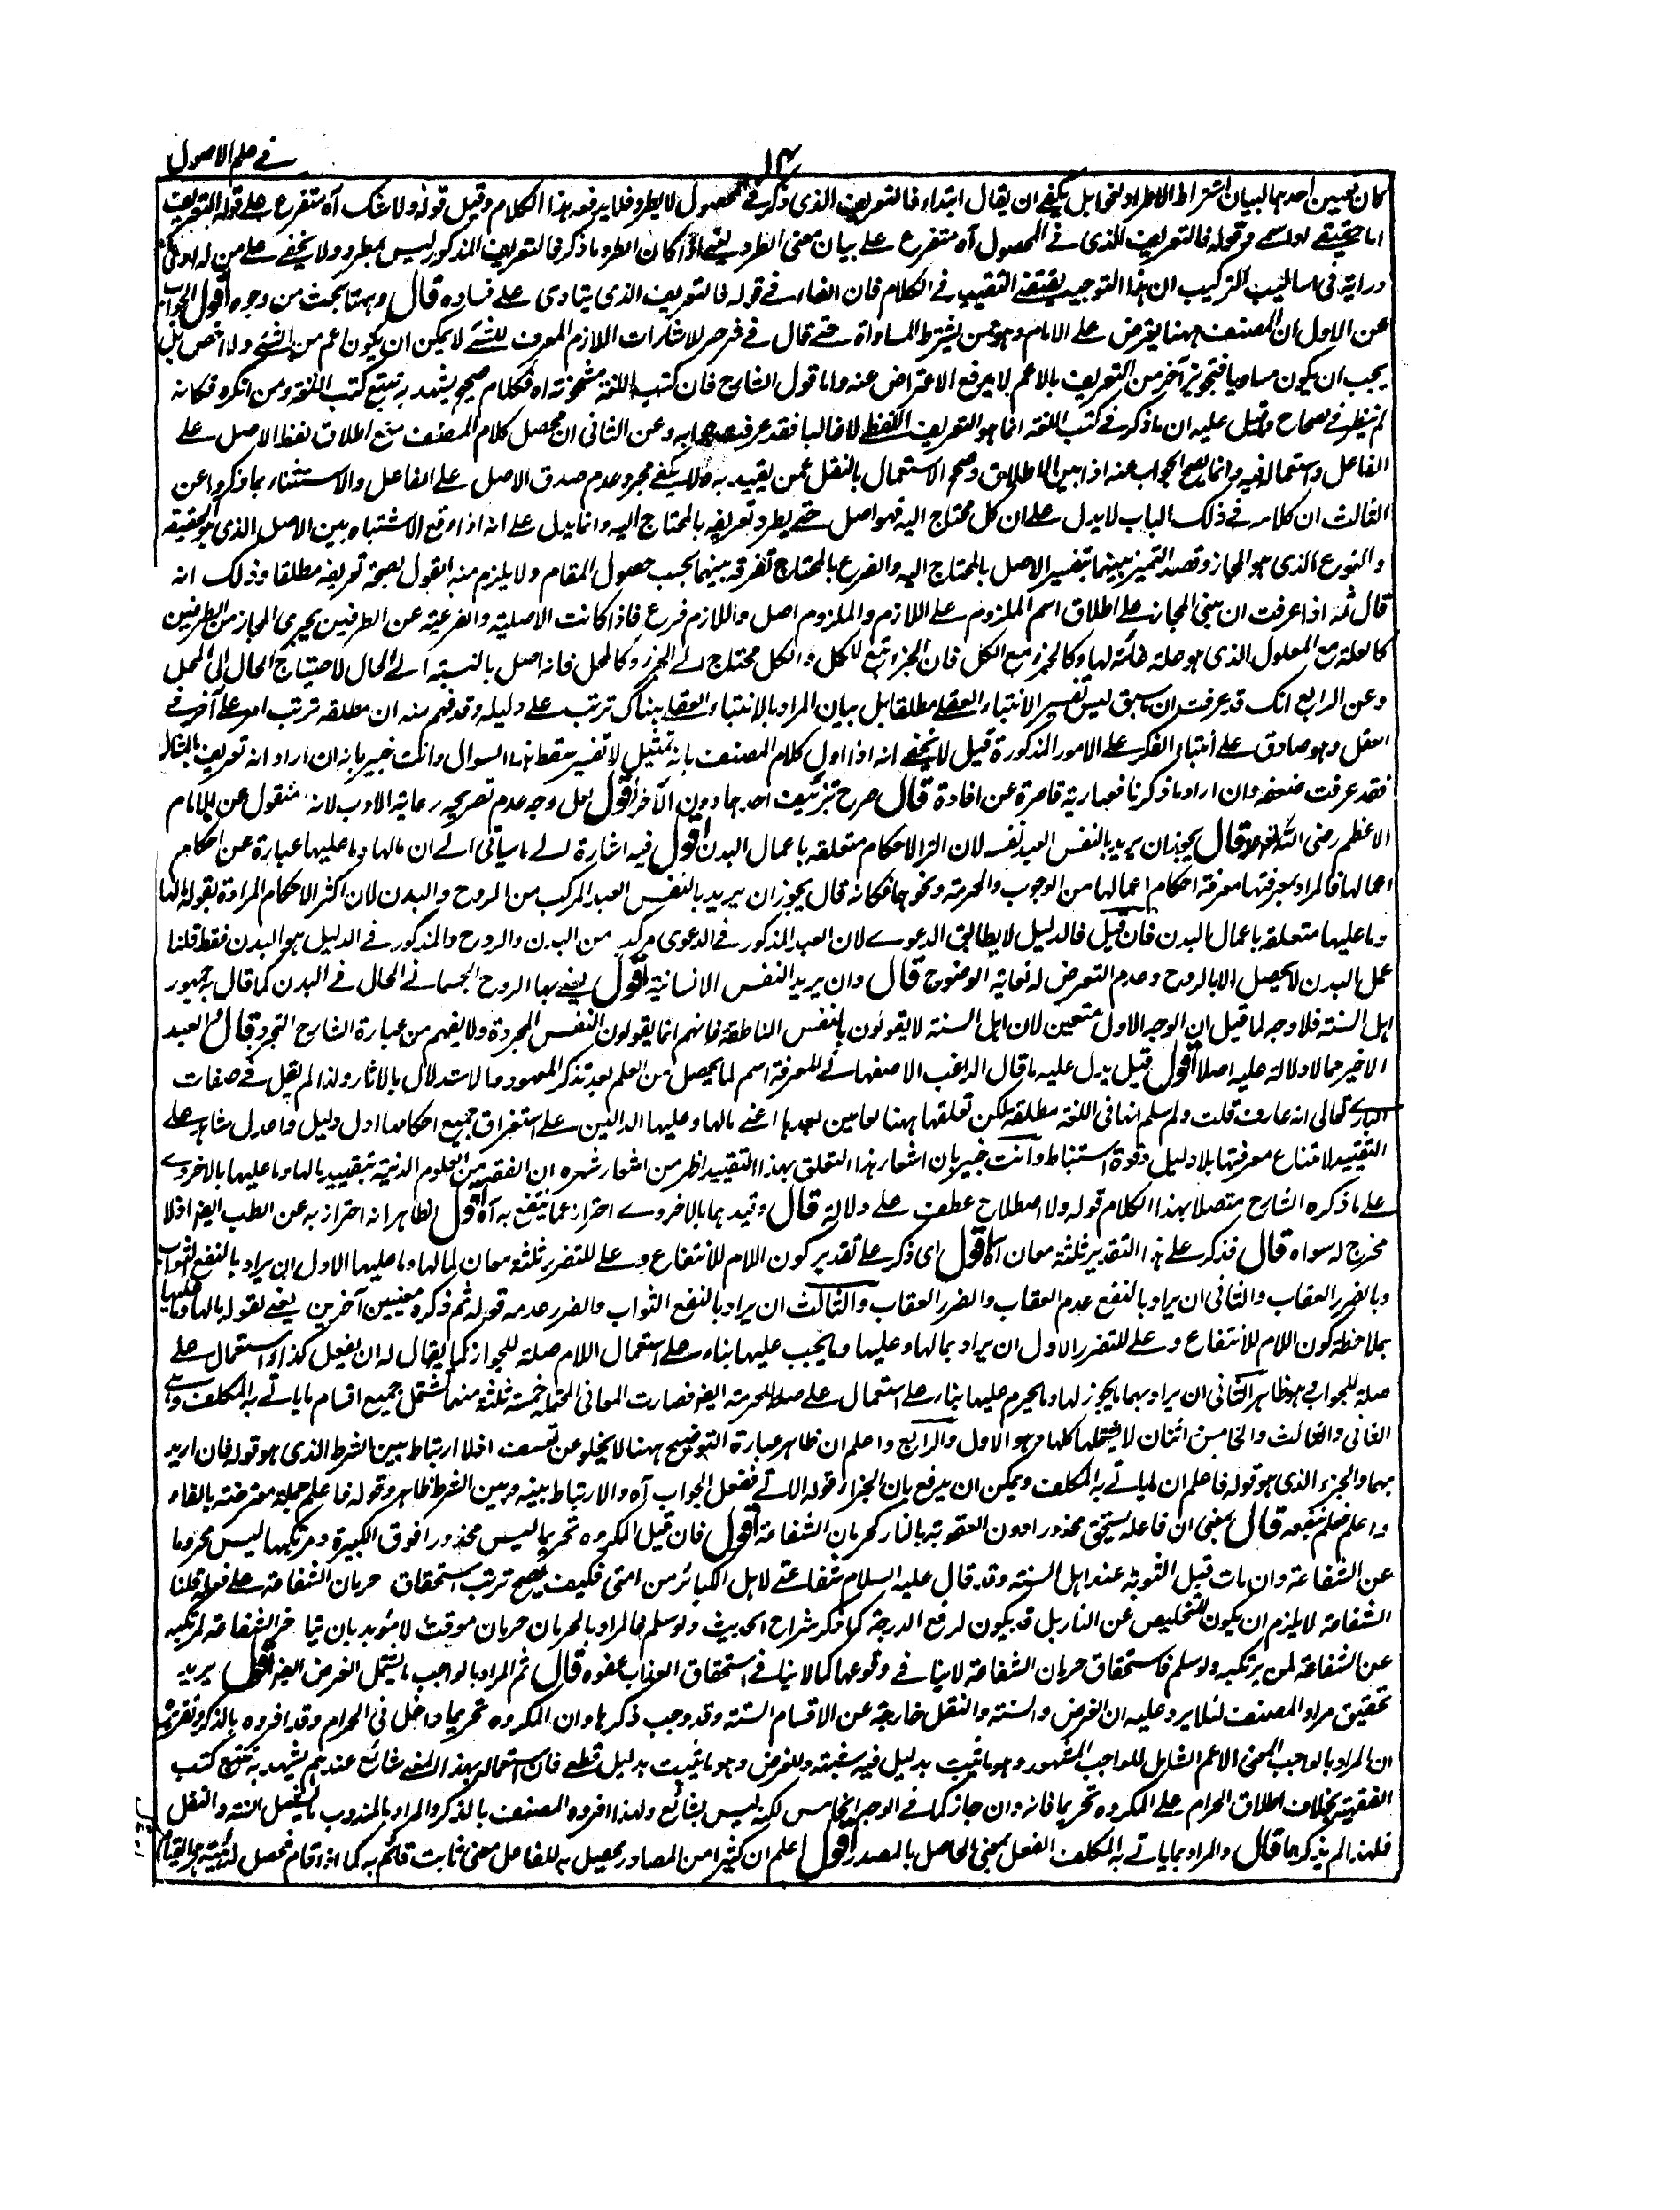 في علم الاصول
١٣
كان تعيين احدهما لبيان اشتراط الاطراد لغوا بل يكفي ان يقال ابتداء فالتعريف الذي ذكر في المحصول لا يطرد فلا يدفعه هذا الكلام وقيل قوله ولا شك آه متفرع على قوله التعريف
اما حقيقي او اسمي وقوله فالتعريف الذي في المحصول آه متفرع على بيان معنى الطرد يعني اذا كان الطرد ما ذكر فالتعريف المذكور ليس بمطرد ولا يخفى على من له ادنى
دراية في اساليب التركيب ان هذا التوجيه يقتضي التعقيب في الكلام فان الفاء في قوله فالتعريف الذي ينادي على فساده قال وههنا بحث من وجوه اقول الجواب
عن الاول ان المصنف ههنا يعرض على الامام وهو ممن يشترط المساواة حتى قال في شرح للاشارات اللازم المعرف للشئ لا يمكن ان يكون اعم من الشئ ولا اخص بل
يجب ان يكون مساويا فتجويز آخر من التعريف بالاعم لا يرفع الاعتراض عنه واما قول الشارح فان كتب اللغة مشحونة آه فكلام صحيح يشهد به تتبع كتب اللغة ومن انكره فكانه
لم ينظر في صحاح وقيل عليه ان ما ذكر في كتب اللغة انما هو التعريف اللفظي لا غالبا فقد عرفت جوابه وعن الثاني ان محصل كلام المصنف منع اطلاق لفظ الاصل على
الفاعل واستعماله فيه وانما يصح الجواب عنه اذا بين الاطلاق وصحح الاستعمال بالنقل عمن يقيد به ولا يكفي مجرد عدم صدق الاصل على الفاعل والاستثناء بما ذكر واعن
الثالث ان كلامه في ذلك الباب لا يدل على ان كل محتاج اليه فهو اصل حتى يطرد تعريفه بالمحتاج اليه وانما يدل على انه اذا وقع الاشتباه بين الاصل الذي هو الحقيقة
والفرع الذي هو المجاز وقصد التميز بينهما بتفسير الاصل بالمحتاج اليه والفرع بالمحتاج تفرقة بينهما بحسب حصول المقام ولا يلزم منه القول بصحة تعريفه مطلقا وذلك انه
قال ثمه اذا عرفت ان مبنى المجاز على اطلاق اسم الملزوم على اللازم والملزوم اصل واللازم فرع فاذا كانت الاصلية والفرعية عن الطرفين يجري المجاز من الطرفين
كالعلة مع المعلول الذي هو علة غائية لها وكالجزء مع الكل فان الجزء تبع للكل والكل محتاج الى الجزء وكالمحل فانه اصل بالنسبة الى الحال لاحتياج الحال الى المحل
وعن الرابع انك قد عرفت ان ما سبق ليس تفسير الابتناء العقلي مطلقا بل بيان المراد بالابتناء العقلي هناك ترتب على دليله وقد فهم منه ان مطلقه ترتب امر على آخر في
العقل وهو صادق على ابتناء الفكر على الامور المذكورة قيل لا يخفى انه اذا اول كلام المصنف بانه تمثيل لا تفسير سقط هذا السوال وانت خبير بانه ان اراد انه تعريف بالمثال
فقد عرفت ضعفه وان اراد ما ذكرنا فعبارته قاصرة عن افادة قال صرح تبزئيف احدهما دون الآخر اقول لعل وجه عدم تصريحه رعاية الادب لانه منقول عن الامام
الاعظم رضي الله عنه قال يجوز ان يريد بالنفس العبد نفسه لان اكثر الاحكام متعلقة باعمال البدن اقول فيه اشارة الى ما سيأتي الى ان مالها وما عليها عبارة عن احكام
اعمالها فالمراد بمعرفتها معرفة احكام اعمالها من الوجوب والحرمة ونحوهما فكانه قال يجوز ان يريد بالنفس العبد المركب من الروح والبدن لان اكثر الاحكام المرادة بقوله مالها
وما عليها متعلقة باعمال البدن فان قيل فالدليل لا يطابق الدعوى لان العبد المذكور في الدعوى مركب من البدن والروح والمذكور في الدليل هو البدن فقط قلنا
عمل البدن لا يحصل الا بالروح وعدم التعرض له لغاية الوضوح قال وان يريد النفس الانسانية اقول يعني بها الروح الجسماني الحال في البدن كما قال به جمهور
اهل السنة فلا وجه لما قيل ان الوجه الاول متعين لان اهل السنة لا يقولون بالنفس الناطقة فانهم انما يقولون النفس المجردة ولا يفهم من عبارة الشارح التجرد قال العبد
الاخير مما لا دلالة عليه اصلا اقول قيل يدل عليه ما قال الراغب الاصفهاني المعرفة اسم لما يحصل من العلم بعد تذكر المعهود والاستدلال بالاثار ولذا لم يقل في صفات
الباري تعالى انه عارف قلت ولو سلم انها في اللغة مطلقة لكن تعلقها ههنا لعامين بعدها اعني مالها وعليها الدالين على استغراق جميع احكامها ادل دليل واعدل شاهد على
التقييد لامتناع معرفتها بلا دليل وقوة استنباط وانت خبير بان اشعار هذا التعلق بهذا التقييد اظهر من اشعار شهره ان الفقه من العلوم الدنية بتقييد مالها وما عليها بالاخروي
على ما ذكره الشارح متصلا بهذا الكلام قوله ولا اصطلاح عطف على دلالة قال وقيدهما بالاخروي احترازا عما ينتفع به آه اقول الظاهر انه احتراز به عن الطب ايضا اذ لا
مخرج له سواه قال فذكر على هذا التقدير ثلثة معان آه اقول اى ذكر على تقدير كون اللام للانتفاع وعلى للتضرر ثلثة معان لمالها وما عليها الاول ان يراد بالنفع الثواب
وبالضرر العقاب والثاني ان يراد بالنفع عدم العقاب والضرر العقاب والثالث ان يراد بالنفع الثواب والضرر عدمه قوله ثم ذكره معنيين آخرين يعني لقوله مالها وما عليها
بملاحظة كون اللام للانتفاع وعلى للتضرر الاول ان يراد بمالها وعليها وما يجب عليها بناء على استعمال اللام صلة للجواز كما يقال له ان يفعل كذا واستعمال على
صلة للجواب وهو ظاهر الثاني ان يراد بهما ما يجوز لها وما يحرم عليها بناء على استعمال على صلة للحرمة ايضا فصارت المعاني المحتملة خمسة ثلثة منها تشتمل جميع اقسام ما ياتي به المكلف وهي
الثاني والثالث والخامس اثنان لا يشملها كلها وهو الاول والرابع واعلم ان ظاهر عبارة التوضيح ههنا لا يخلو عن تعسف اذ لا ارتباط بين الشرط الذي هو قوله فان اريد
بهما والجزء الذي هو قوله فاعلم ان ما ياتي به المكلف ويمكن ان يدفع بان الجزاء قوله الاتي ففعل الجواب آه والارتباط بينه وبين الشرط ظاهر وقوله فاعلم جملة معترضة بالفاء
واعلم فعلم ينفعه قال بمعنى ان فاعله يستحق محذورا دون العقوبة بالنار كحرمان الشفاعة اقول فان قيل المكروه تحريما ليس محذورا فوق الكبيرة ومرتكبها ليس محروما
عن الشفاعة وان مات قبل التوبة عند اهل السنة وقد قال عليه السلام شفاعتي لاهل الكبائر من امتي فكيف يصح ترتب استحقاق حرمان الشفاعة على فعله قلنا
الشفاعة لا يلزم ان يكون للتخليص عن النار بل قد يكون لرفع الدرجة كما ذكر شراح الحديث ولو سلم فالمراد بالحرمان حرمان موقت لا مؤبد بان تتاخر الشفاعة لمرتكبه
عن الشفاعة لمن يرتكبه ولو سلم فاستحقاق حرمان الشفاعة لا ينافي وقوعها كما لا ينافي استحقاق العذاب عفوه قال ثم المراد بالواجب ما يشتمل الفرض ايضا اقول يريد
تحقيق مراد المصنف لئلا يرد عليه ان الفرض والسنة والنفل خارجة عن الاقسام الستة وقد وجب ذكرها وان المكروه تحريما داخل في الحرام وقد افرده بالذكر وتقريره
ان المراد بالواجب المعنى الاعم الشامل للواجب المشهور وهو ما ثبت بدليل فيه شبهة وللفرض وهو ما ثبت بدليل قطعي فان استعماله بهذا المعنى شائع عندهم يشهد به تتبع كتب
الفقهية بخلاف اطلاق الحرام على المكروه تحريما فانه وان جاز كما في الوجه الخامس لكنه ليس بشائع ولهذا افرده المصنف بالذكر والمراد بالمندوب ما يشمل السنة والنفل
فلهذا لم يذكرهما قال والمراد بما ياتي به المكلف الفعل بمعنى الحاصل بالمصدر اقول اعلم ان كثيرا من المصادر يحصل به للفاعل معنى ثابت قائم به كما اذا قام فحصل له هيئة هي القيام